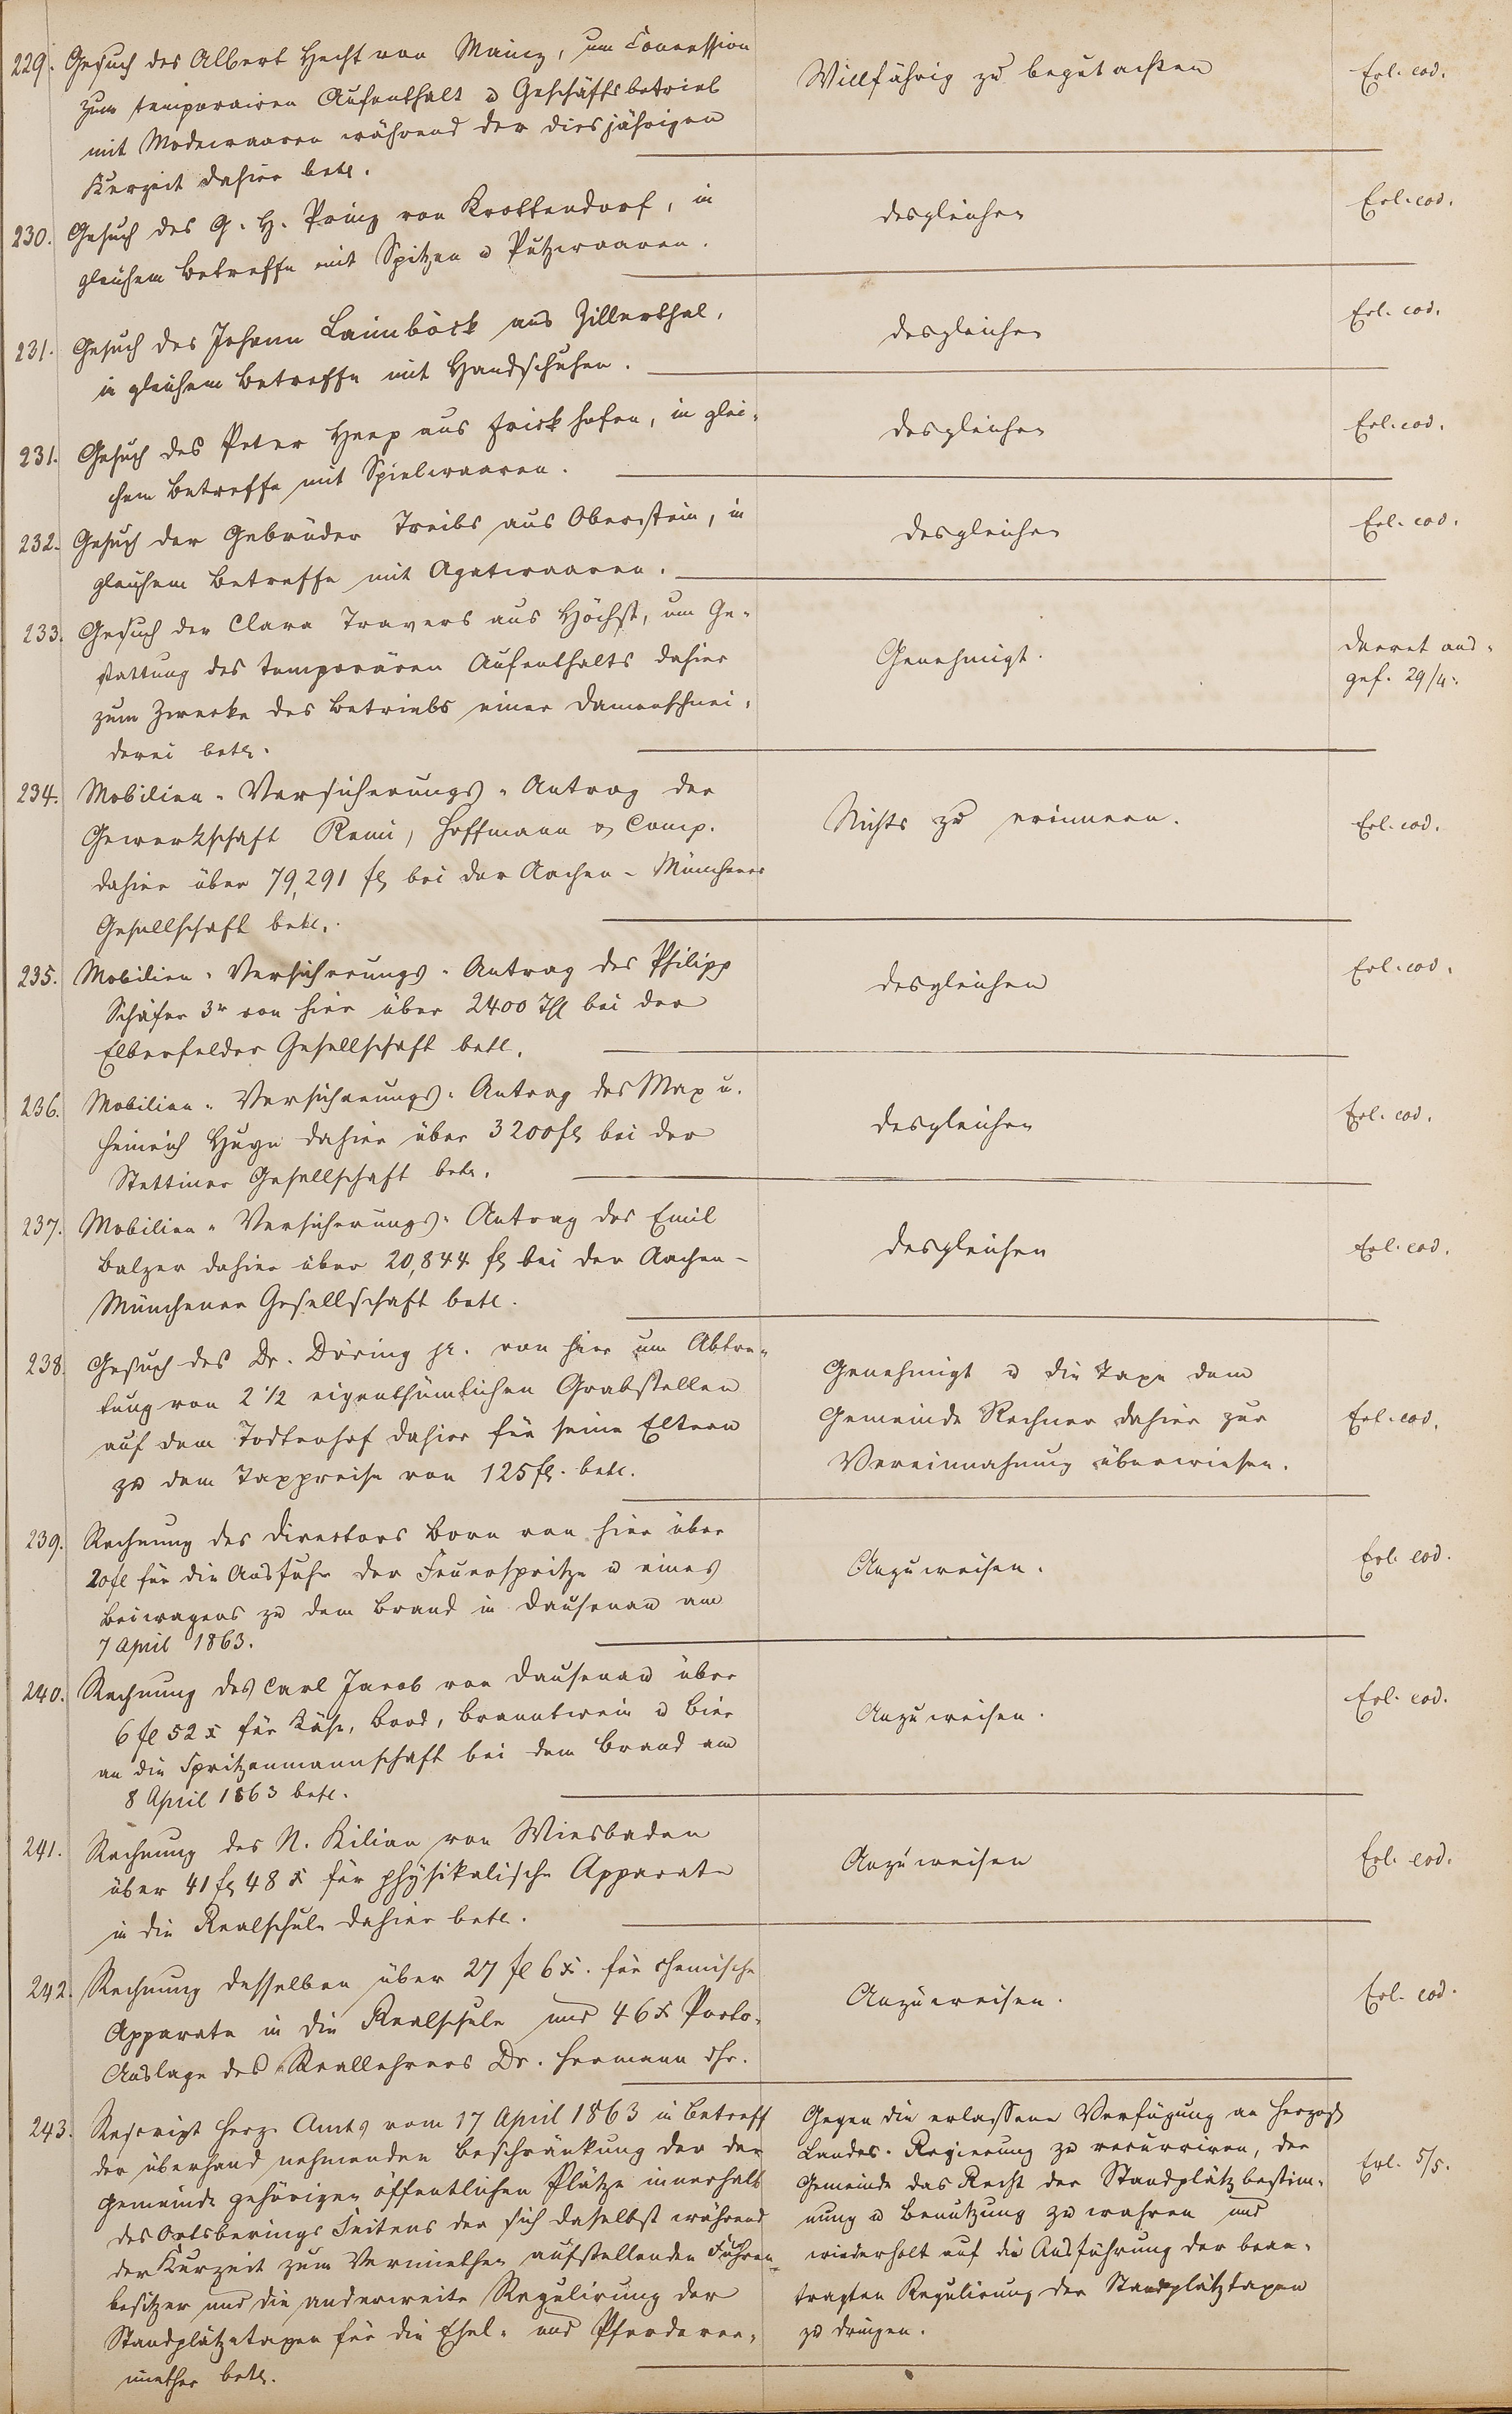 229. Gesuch des Albert Hecht von Mainz, um Concession
zum temporairen Aufenthalt u Geschäftsbetrieb
mit Modewaaren während der diesjährigen
Kurzeit dahier betr.
Willfährig zu begutachten
Erl. eod.
230. Gesuch des G. H. Prinz von Krottendorf, in
gleichem Betreffe mit Spitzen u Putzwaaren.
desgleichen
Erl. eod.
231. Gesuch des Johann Laimböck aus Zillerthal,
in gleichem Betreffe mit Handschuhen.
desgleichen
Erl. eod.
231. Gesuch des Peter Heep aus Frickhofen, in glei-
chem Betreffe mit Spielwaaren.
desgleichen
Erl. eod.
232. Gesuch der Gebrüder Treibs aus Oberstein, in
gleichem Betreffe mit Agatwaaren.
desgleichen
Erl. eod.
233. Gesuch der Clara Travers aus Höchst, um Ge-
stattung des temporären Aufenthalts dahier
zum Zwecke des Betriebs einer Damenschnei-
derei betr.
Genehmigt.
Decret aus-
gef. 29/4.
234. Mobilien-Versicherungs-Antrag der
Gewerkschaft Remi, Hoffmann & Comp.
dahier über 79,291 fl bei der Aachen-Münchener
Gesellschaft betr.
Nichts zu erinnern.
Erl. eod.
235. Mobilien-Versicherungs-Antrag des Philipp
Schäfer 3r von hier über 2400 Thl bei der
Elberfelder Gesellschaft betr.
desgleichen
Erl. eod.
236. Mobilien-Versicherungs-Antrag des Max u.
Heinrich Huyn dahier über 3200 fl bei der
Stettiner Gesellschaft betr.
desgleichen
Erl. eod.
237. Mobilien-Versicherungs-Antrag des Emil
Balzer dahier über 20,844 fl bei der Aachen-
Münchener Gesellschaft betr.
desgleichen
Erl. eod.
238. Gesuch des Dr. Döring jr. von hier um Abtre-
tung von 2 1/2 eigenthümlichen Grabstellen
auf dem Todtenhof dahier für seine Eltern
zu dem Taxpreise von 125 fl. betr.
Genehmigt u die Taxe dem
Gemeinde Rechner dahier zur
Vereinnahmung überwiesen.
Erl. eod.
239. Rechnung des Directors Born von hier über
20 fl für die Ausfuhr der Feuerspritze u eines
Beiwagens zu dem Brand in Dausenau am
7 April 1863.
Anzuweisen.
Erl. eod.
240. Rechnung des Carl Jacob von Dausenau über
6 fl 52 x für Käse, Brod, Branntwein u Bier
an die Spritzenmannschaft bei dem Brand am
8 April 1863 betr.
Anzuweisen.
Erl. eod.
241. Rechnung des N. Kilian von Wiesbaden
über 41 fl 48 x für physikalische Apparate
in die Realschule dahier betr.
Anzuweisen
Erl. eod.
242. Rechnung desselben über 27 fl 6 x. für chemische
Apparate in die Realschule und 46 x Porto-
Auslage des Reallehrers Dr. Hermann dhr.
Anzuweisen.
Erl. eod.
243. Rescript Herz. Amts vom 17 April 1863 in Betreff
der überhand nehmenden Beschränkung der der
Gemeinde gehörigen öffentlichen Plätze innerhalb
des Ortsberings Seitens der sich daselbst während
der Kurzeit zum Vermiethen aufstellenden Fuhren-
besitzer und die anderweite Regulirung der
Standplätzetaxen für die Esel- und Pferdever-
miether betr.
Gegen die erlassene Verfügung an Herzogl
Landes-Regierung zu recurriren, der
Gemeinde das Recht der Standplätzbestim-
mung u Benutzung zu wahren und
wiederholt auf die Ausführung der bean-
tragten Regulirung der Standplätztaxen
zu dringen.
Erl. 5/5.